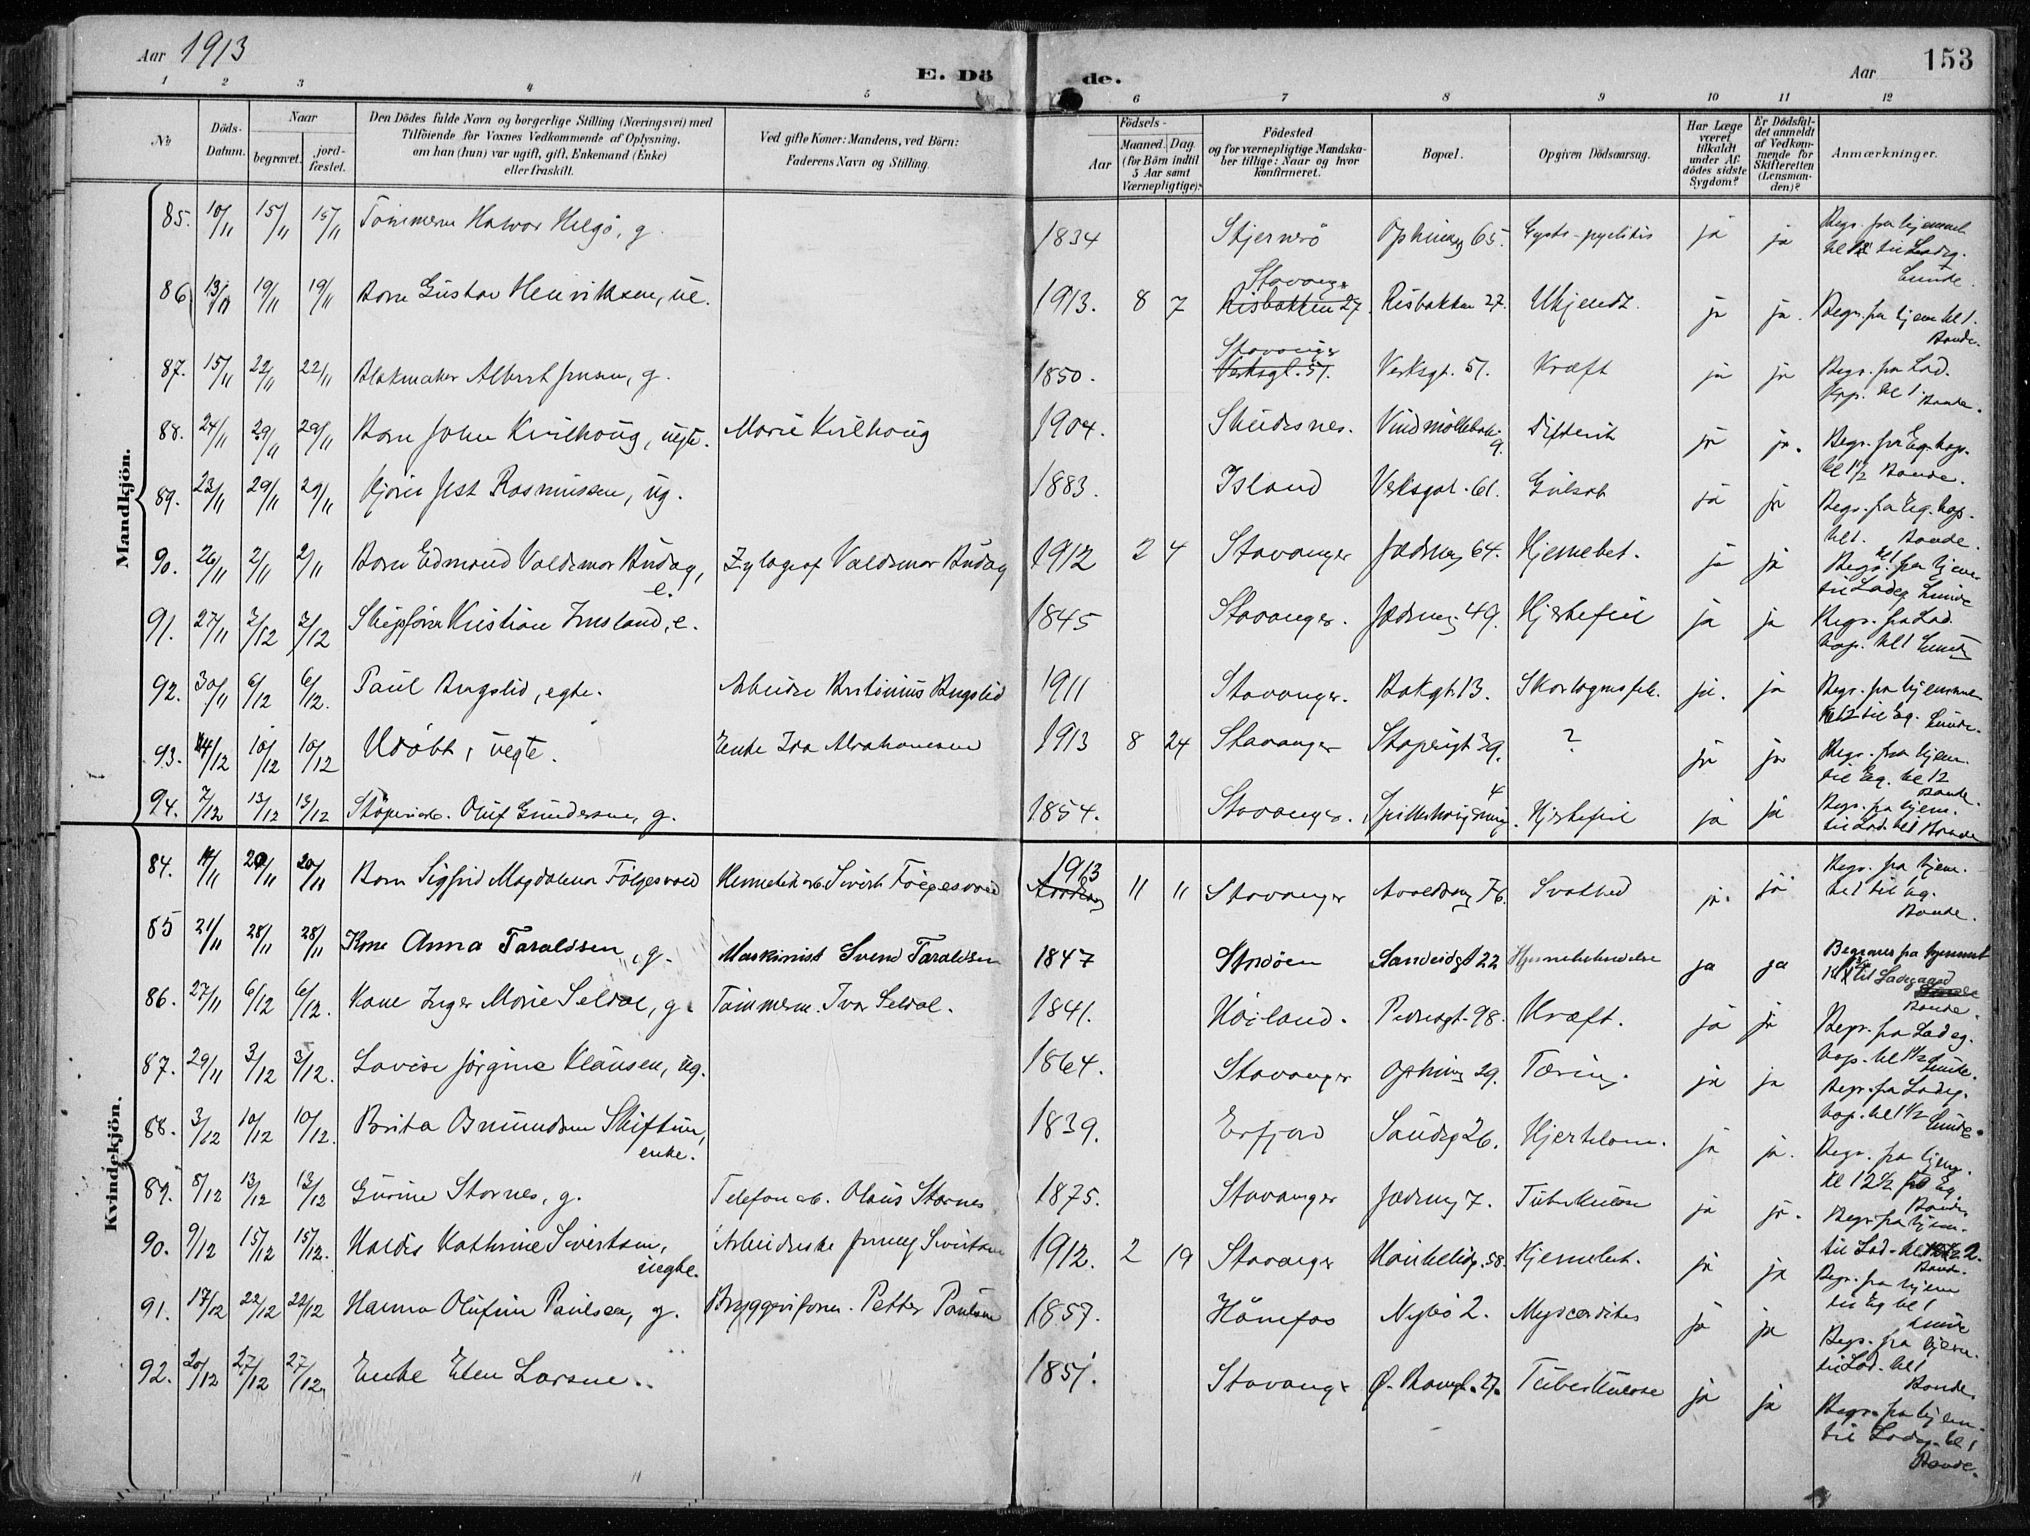 Aar 1913
E. Dö de.
Aar 153
1 2 3 4 5 6 7 8 9 10 11 12
No
Döds-Datum.
Naar
begravet.
jordfæstet.
Den Dödes fulde Navn og borgerlige Stilling (Næringsvei) med
Tilföiende for Voxnes Vedkommende af Oplysning,
om han (hun) var ugift, gift, Enkemand (Enke)
eller fraskilt.
Ved gifte Koner: Mandens, ved Börn:
Faderens Navn og Stilling.
Födsels-
Aar
Maaned. Dag.
(for Börn indtil
5 Aar samt
Værnepligtige).
Födested
og for værnepligtige Mandska-
ber tillige: Naar og hvor
konfirmeret.
Bopæl.
Opgiven Dödsaarsag.
Har Læge
været
tilkaldt
under Af-
dödes sidste
Sygdom?
Er Dödsfal-
det anmeldt
af Vedkom-
mende for
Skifteretten
(Lensman-
den)?
Anmærkninger.
Mandkjön.
85. 10/11 15/11 15/11 Tömmerm Halvor Helgö, g. 1834 Stjernerö 65. ja ja
86 13/11 19/11 19/11 Barn Gustav Henriksen, ue. 1913. 8 7 Stavanger Risbakken 27. Risbakken 27. Ukjendt ja ja. Begr. fra hjem kl 1. Bonde.
87. 15/11 22/11 22/11 Blokmaker Albert Jensen, g. 1850. Stavanger Verksgt. 51. Verksgt. 51. Kræft ja ja Begr. fra Lad. kap. kl 1. Bonde.
88. 24/11 29/11 29/11 Barn John Kvilhoug, uegte. Marie Kvilhoug 1904. Skudesnes. Vindmöllebak. 9. Difterit ja ja. Begr. fra Eg. kap. kl 1 1/2 Bonde.
89. 23/11 29/11 29/11 Jest Rasmussen, ug. 1883. Island Verksgat. 61. Gulsot ja ja Begr. fra Eg. kap. kl 1. Bonde.
90. 26/11 2/11 2/11 Barn Edmund Valdemar e. Valdemar 1912 2 4 Stavanger Jædervej 64. Hjernebet. ja ja Begr. fra hjem til Ladeg. Lunde
91. 27/11 2/12 2/12 Skipsförer Kristian Imsland, e. 1845 Stavanger. Jædervej 49. Hjertefeil ja ja Begr. fra Lad. kap. kl 1 Lunde
92. 30/11 6/12 6/12. Paul egte. Arbeider 1911 Stavanger. Bakgt. 13. Skarlagensfeb. ja. ja Begr. fra hjemme kl 12 til Eg. Lunde.
93. 4/12 10/12 10/12 Udöbt, uegte. Enke Ida Abrahamsen 1913 8 24 Stavanger 39. ? ja ja Begr. fra hjem. til Eg. kl 12 Bonde.
94. 7/12 13/12 13/12 Oluf Gundersen, g. 1854. Stavanger. 4 Hjertefeil ja ja Begr. fra hjem. til Lad. kl 1 Bonde
Kvindekjön.
84. 20/11 20/11 Barn Sigfrid Magdalena Fölgesvold Sivert Fölgesvold 1913 11 11 Stavanger 76. Svakhed ja. ja Begr. fra hjem. kl 1 til Eg. Bonde.
85 21/11 28/11 28/11 Kone Anna Taraldsen, g. Maskinist Svend Taraldsen 1847 Stordöen Sandeidgt 22 ja ja Begraves fra hjemmet til Ladegaard Bonde.
86. 27/11 6/12 6/12. Kone Inger Marie Seldal, g. Tömmerm. Ivar Seldal. 1841. Höiland. Pedersgt. 98. Kræft. ja ja Begr. fra Ladeg. kap. kl 1 1/2 Lunde.
87. 29/11 3/12 3/12. Lovise Jörgine Klausen, ug. 1864. Stavanger 29. Tæring. ja ja Begr. fra Ladeg. kap. kl 1 1/2 Lunde.
88. 3/12 10/12 10/12. Berita Osmundsen Skiftun, enke. 1839. Erfjord 26. ja ja. Begr. fra hjem. kl 12 1/2 Eg. Bonde
89. 8/12 13/12 13/12 Gurine Stornes, g. Telefonarb. Olaus Stornes 1875. Stavanger Jædervej 7. Tuberkulose ja ja. Begr. fra hjem. til Lad. kl 2. Bonde.
90. 9/12 15/12 15/12. Haldis Kathrine Sivertsen, uegte. Sivertsen 1912. 2 19 Stavanger 58. Hjernebet. ja ja Begr. fra hjem til Eg kl 1 Lunde
91. 17/12 22/12 22/12 Hanna Olufine Paulsen, g. Petter Paulsen 1857. Hönefos Nybö 2. Myocarditis ja ja Begr. fra hjem. til Lad. kl 1 Bonde.
92. 20/12 27/12 27/12. Enke Elen Larsen. 1851. Stavanger Ø. 27. Tuberkulose ja ja Begr. fra hjem. til Ladeg. kl 1 Bonde.